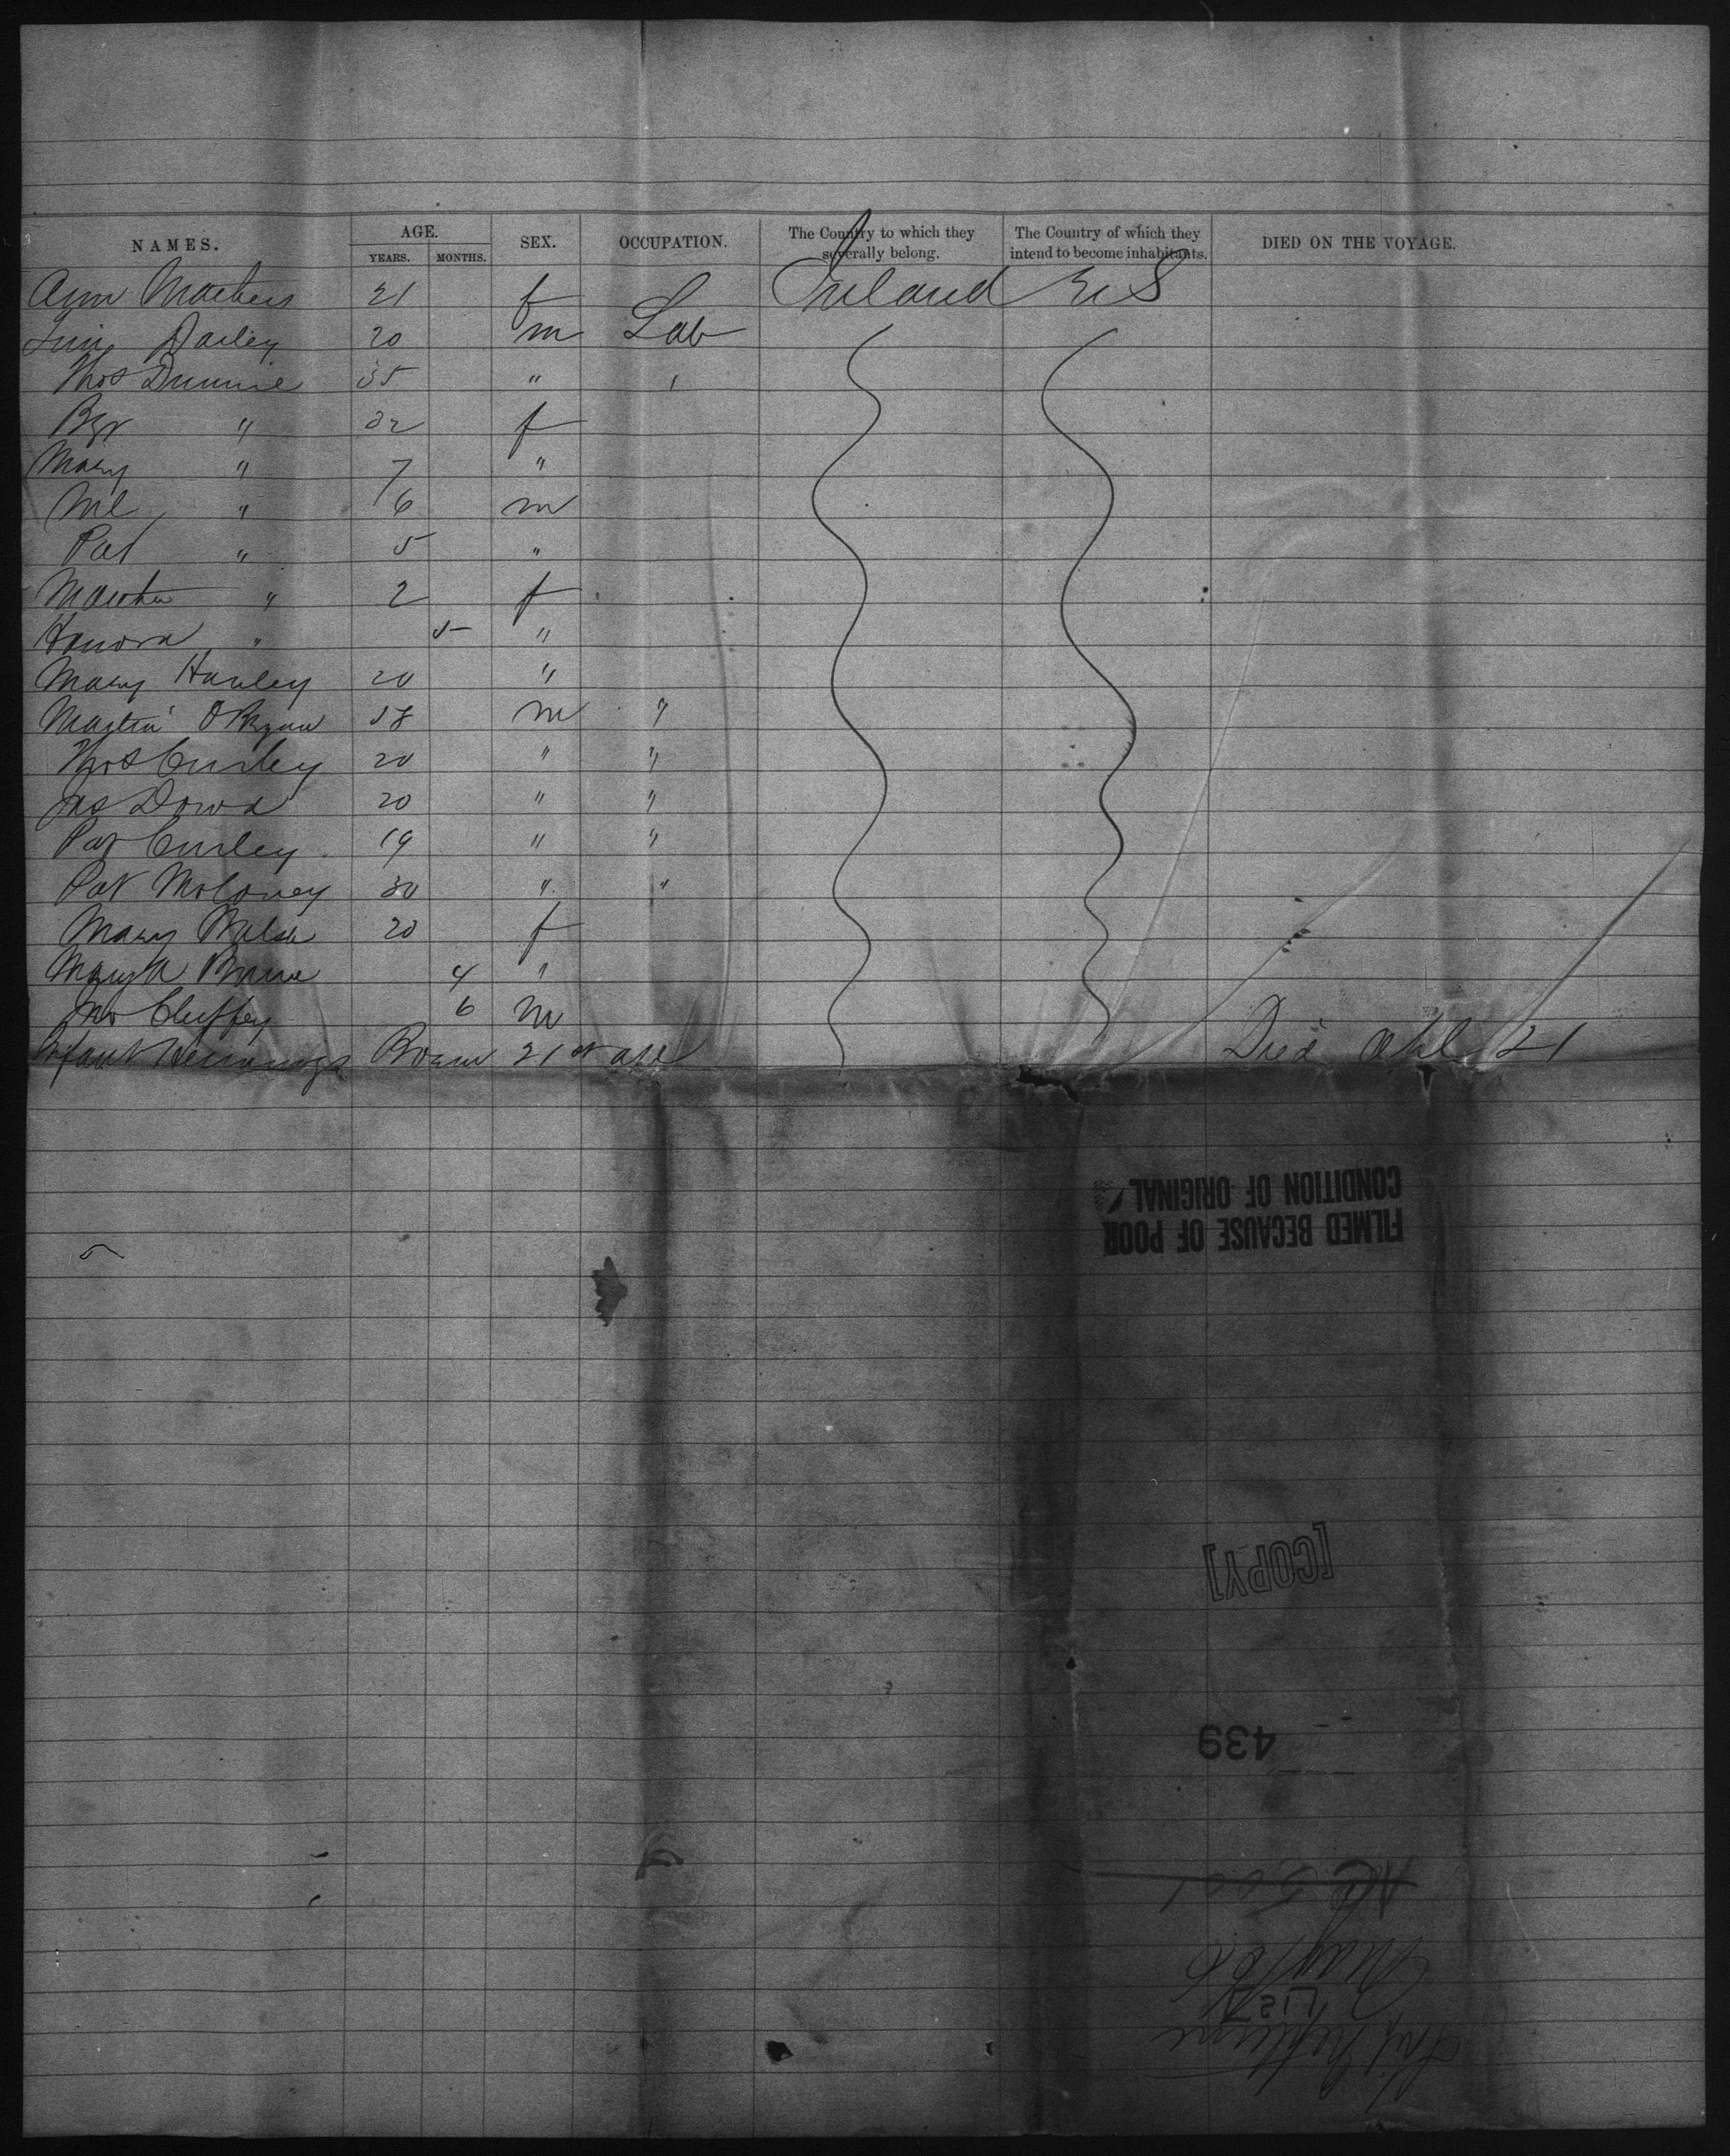 NAMES. AGE. SEX. OCCUPATION. The Country to which they severally belong. The Country of which they intend to become inhabitants. DIED ON THE VOYAGE.
YEARS. MONTHS.
Ann 21 f Ireland U S
Dailey 20 m Lab
Thos Dunnie 35 " "
" 32 f
Mary " 7 "
Ml " 6 m
Pat " 5 "
Martha " 2 f
Honora " 5 "
Mary Hanley 20 "
Martin 58 m "
Thos Curley 20 " "
Jas Dowd 20 " "
Pat Curley 19 " "
Pat Moloney 30 " "
Mary Walsh 20 f
Mary A 4 "
Jno Cluffey 6 m
Infant Hennings Born 21st apl Died Apl 21
FILMED BECAUSE OF POOR
CONDITION OF ORIGINAL
[COPY]
439
5001
May
LIST
Neptune